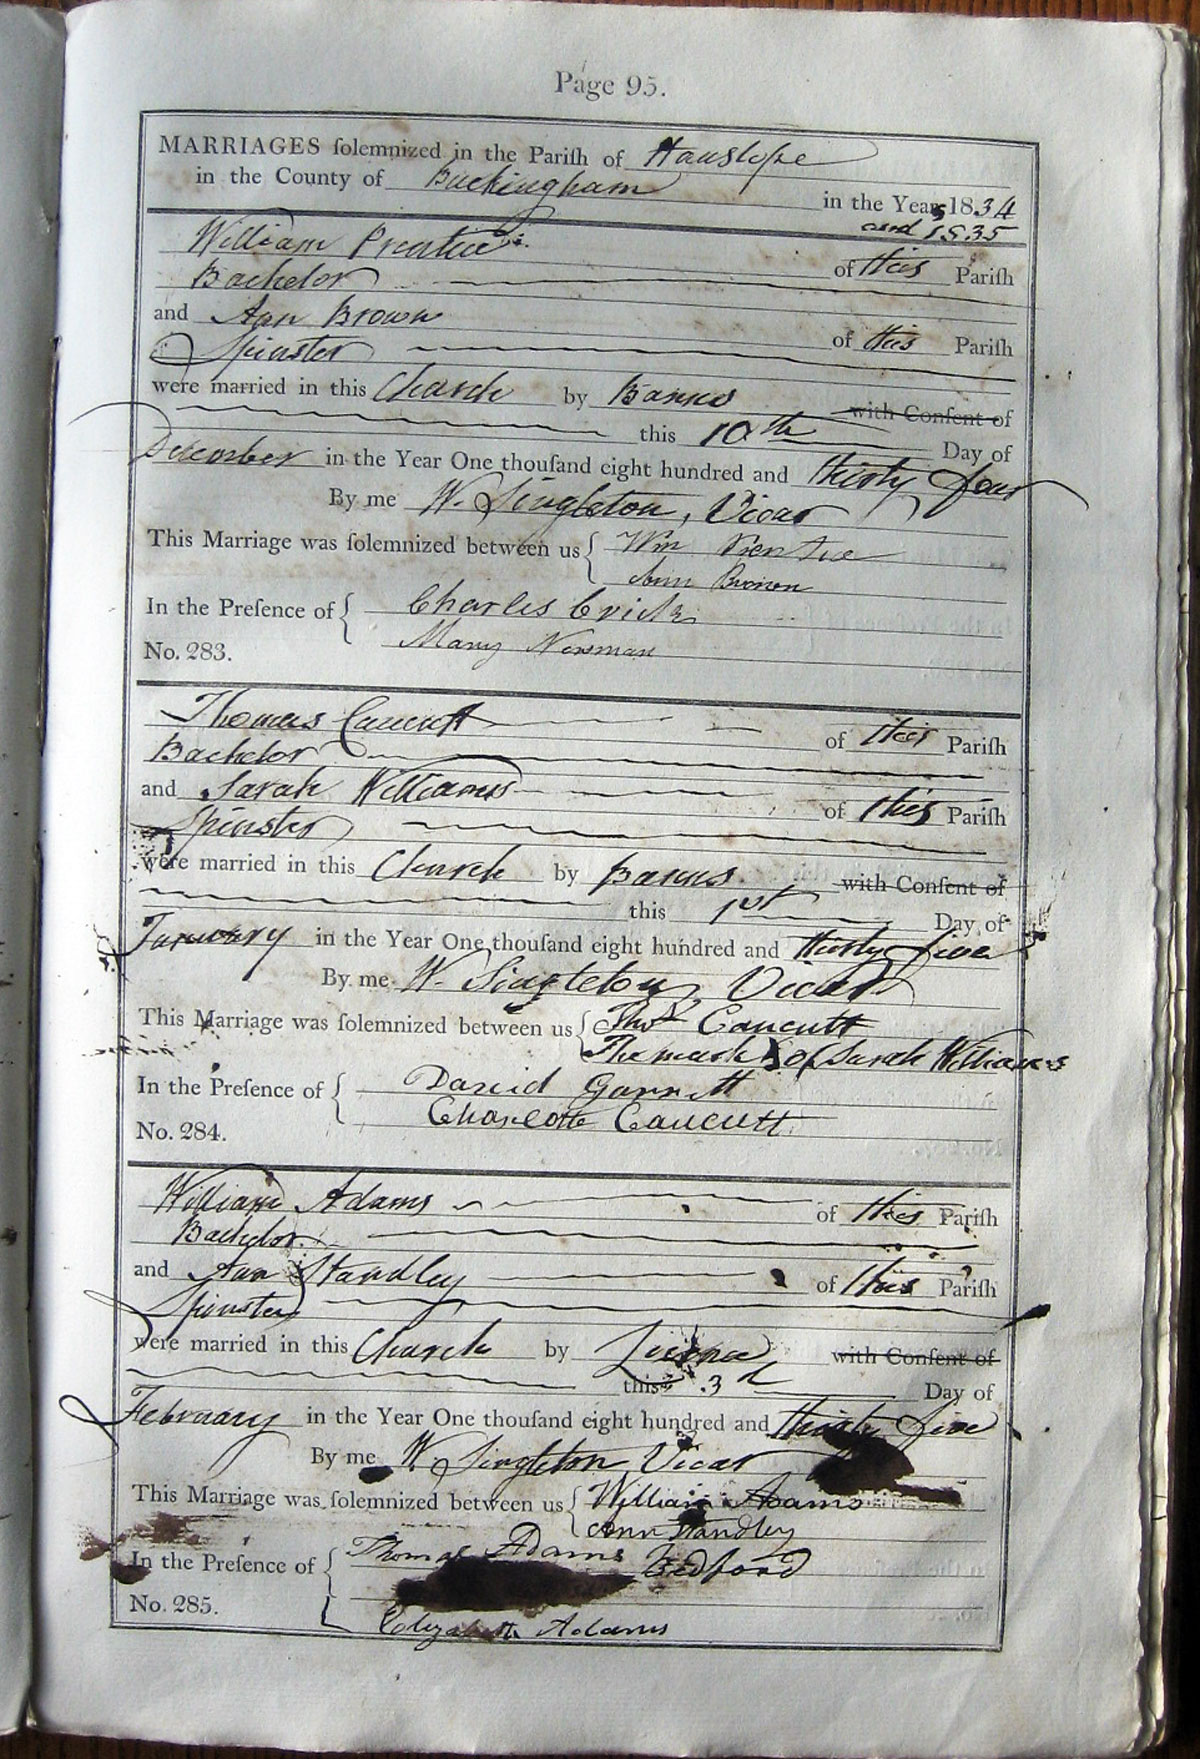 Page 95.
MARRIAGES ſolemnized in the Pariſh of Hanslope
in the County of Buckingham in the Year 1834
and 1835
William Prentice of this Pariſh
Bachelor
and Ann Brown of this Pariſh
Spinster
were married in this Church by Banns with Conſent of
this 10th Day of
December in the Year One thouſand eight hundred and thirty four
By me W. Singleton, Vicar
This Marriage was ſolemnized between us Wm Prentice
Ann Brown
In the Preſence of Charles Crick
Mary Newman
No. 283.
Thomas Caucutt of this Pariſh
Bachelor
and Sarah Williams of this Pariſh
Spinster
were married in this Church by Banns with Conſent of
this 1st Day of
January in the Year One thouſand eight hundred and thirty five
By me W. Singleton, Vicar
This Marriage was ſolemnized between us Thos Caucutt
The mark X of Sarah Williams
In the Preſence of David Garrett
Charlotte Caucutt
No. 284.
William Adams of this Pariſh
Bachelor
and Ann Standley of this Pariſh
Spinster
were married in this Church by Licence with Conſent of
this 3d Day of
February in the Year One thouſand eight hundred and thirty five
By me W Singleton, Vicar
This Marriage was ſolemnized between us William Adams
Ann Standley
In the Preſence of Thomas Adams Bedford
No. 285.
Elizabeth Adams